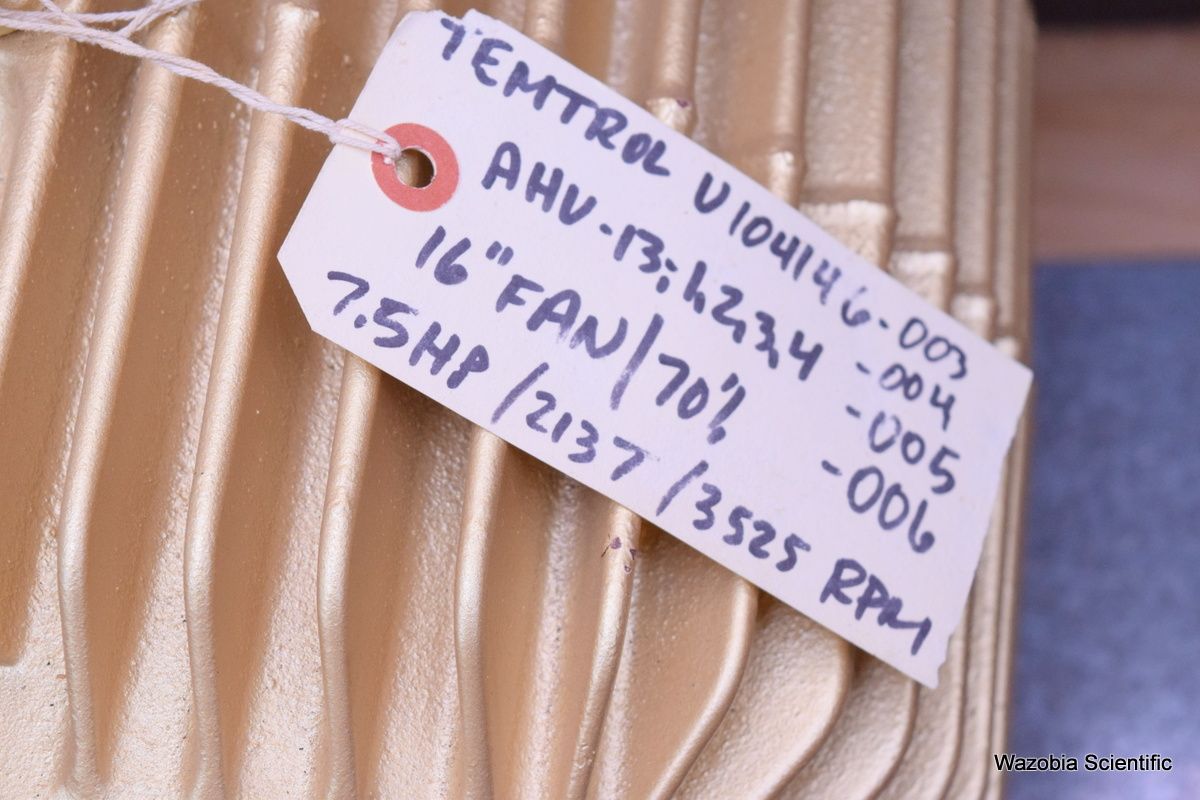 TEMTROL U104146-003
-004
-005
-006
AHU-13; 1,2,3,4
16" FAN/70%
7.5HP/2137/3525 RPM
Wazobia Scientific